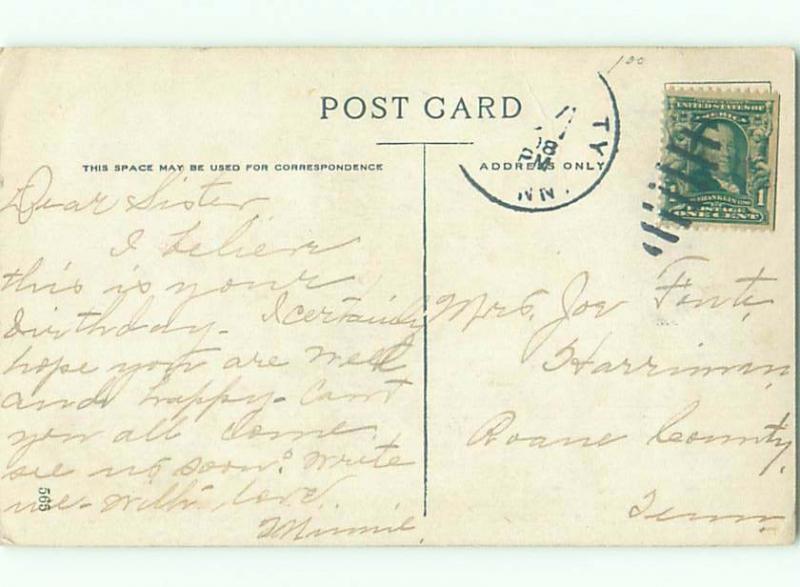 100
POST CARD
THIS SPACE MAY BE USED FOR CORRESPONDENCE
ADDRESS ONLY
TY
NN
UNITED STATES OF
AMERICA
FRANKLIN
POSTAGE
ONE CENT
1
Dear Sister
I believe
this is your
birthday. I certainly
hope you are well
and happy. Can't
you all come
see us soon. Write
me. With love.
Minnie.
Mrs. Joe
Harriman,
Roane County,
Tenn.
565